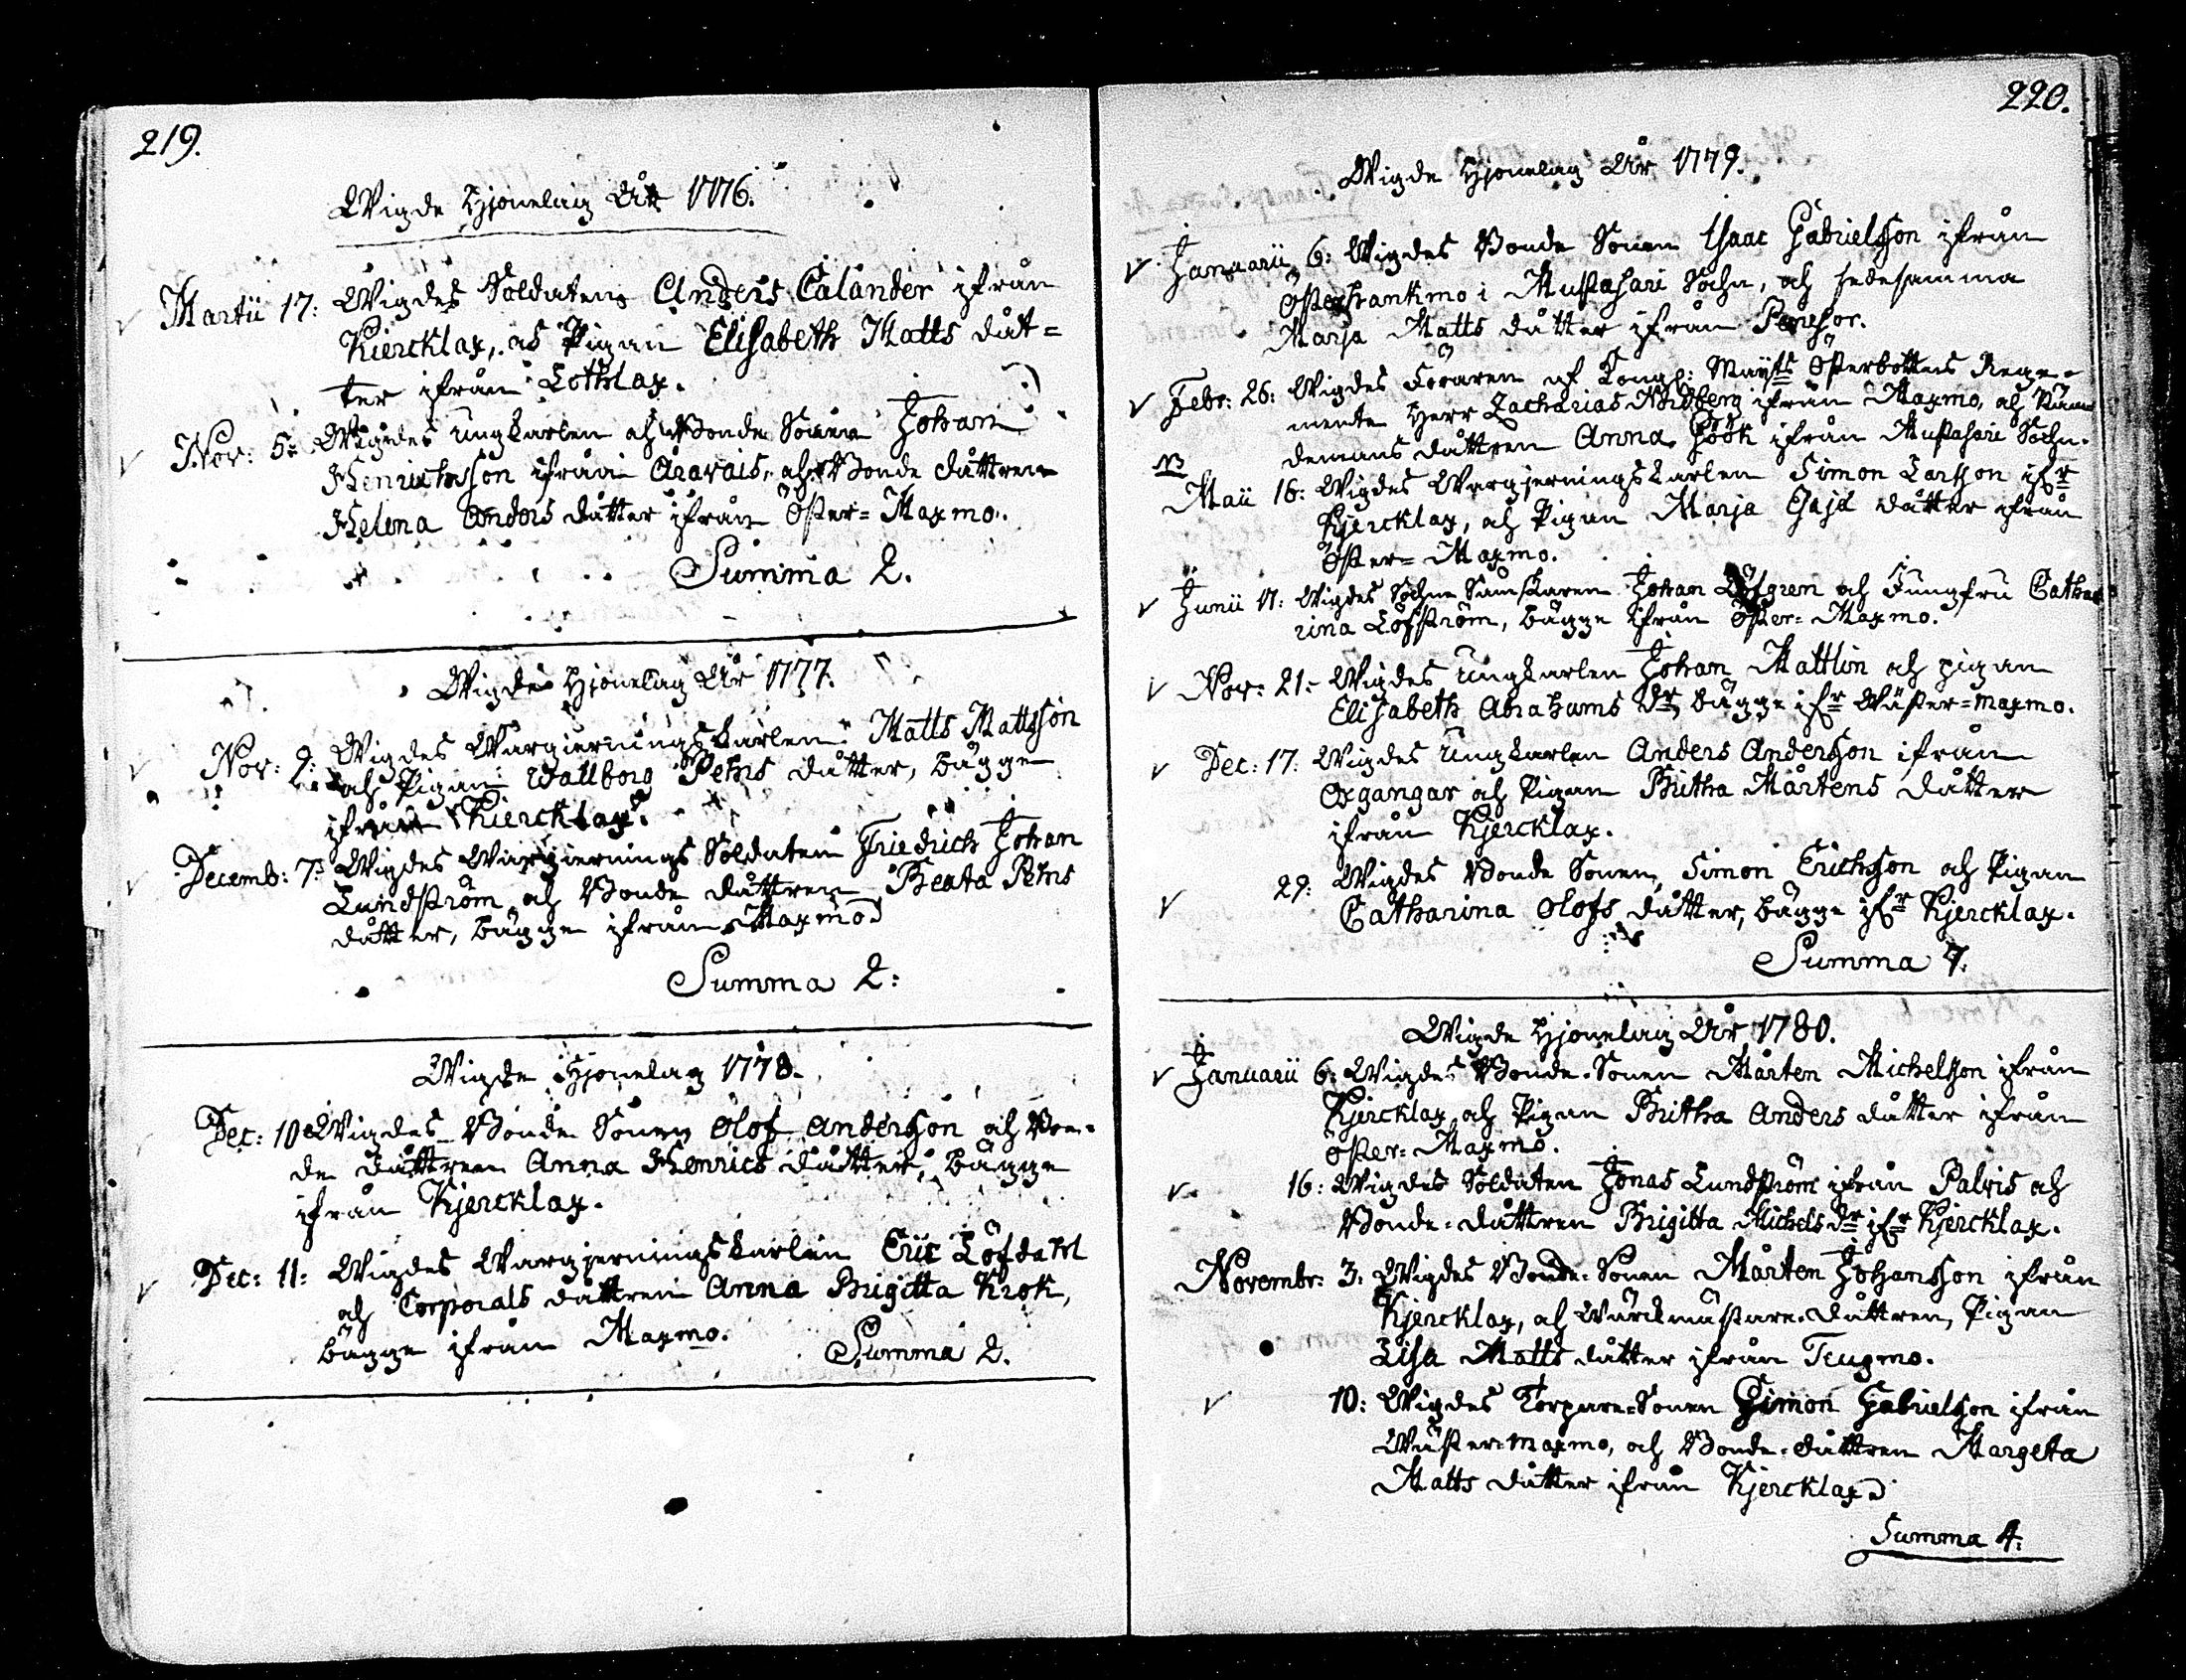 219.
Wigde Hjonelag Åhr 1776.
Martii 17: Wigdes Soldaten Anders Calander ifrån
Kiercklax, as Pigan Elisabeth Matts dåt=
ter ifrån Lothlax.
Nov: 5: Wigdes ungkarlen och Bonde Sonen Johan
Henrichsson ifrån Oravais, och Bonde dåttren
Helena Anders dåtter ifrån Öster=Maxmo.
Summa 2.
Wigde Hjonelag Åhr 1777.
Nov: 9: Wigdes Wargierningskarlen Matts Mattsson
och Pigan Wallborg Pehrs dåtter, bägge
ifrån Kiercklax.
Decemb: 7: Wigdes Wargiernings Soldaten Friedrich Johan
Lundström och Bonde dåttren Beata Pehrs
dåtter, bägge ifrån Maxmo
Summa 2:
Wigde Hjonelag 1778.
Dec: 10 Wigdes Bonde Sonen Olof Andersson och Bon=
de dåttren Anna Henrics dåtter, bägge
ifrån Kjercklax.
Dec: 11: Wigdes Wargjerningskarlen Eric Löfdahl
och Corporals dåttren Anna Brigitta Krok,
bägge ifrån Maxmo.
Summa 2.
220.
Wigde Hjonelag Åhr 1779.
Januarii 6: Wigdes Bonde Sonen Isaac Gabrielsson ifrån
Österhankmo i Mustasari Sochn, och hedesamma
Marja Matts dåtter ifrån
Febr: 26: Wigdes Föraren af Kongl: Maijts Österbottens Rege=
mente Herr Zacharias Nordberg ifrån Maxmo, och Näm
demans dåttren Anna Höök ifrån Mustasari Sochn.
NB
Maii 16: Wigdes Wargjerningskarlen Simon Larsson ifr
Kjercklax, och Pigan Marja Esajæ dåtter ifrån
Öster=Maxmo.
Junii 11: Wigdes Sochne Skomakaren Johan Löfgren och Jungfru Catha
rina Löfström, bägge ifrån Öster=Maxmo.
Nov: 21: Wigdes ungkarlen Johan Mattlin och pigan
Elisabeth Abrahams dr, bägge ifr Wäster=maxmo.
Dec: 17: Wigdes ungkarlen Anders Andersson ifrån
Oxgangar och Pigan Britha Mårtens dåtter
ifrån Kjercklax.
29: Wigdes Bonde Sonen Simon Erichsson och Pigan
Catharina Olofs dåtter, bägge ifr Kjercklax.
Summa 7.
Wigde Hjonelag Åhr 1780.
Januarii 6: Wigdes Bonde=Sonen Mårten Michelsson ifrån
Kjercklax och Pigan Britha Anders dåtter ifrån
Öster=Maxmo.
16: Wigdes Soldaten Jonas Lundström ifrån Palvis och
Bonde=dåttren Brigitta Michels dr ifr Kjercklax.
Novembr: 3: Wigdes Bonde=Sonen Mårten Johansson ifrån
Kjercklax, och Wärckmästare dåttren, Pigan
Lisa Matts dåtter ifrån Teugmo.
10: Wigdes Torpare=Sonen Simon Gabrielsson ifrån
Wäster=maxmo, och Bonde=dåttren Margeta
Matts dåtter ifrån Kjercklax
Summa 4.